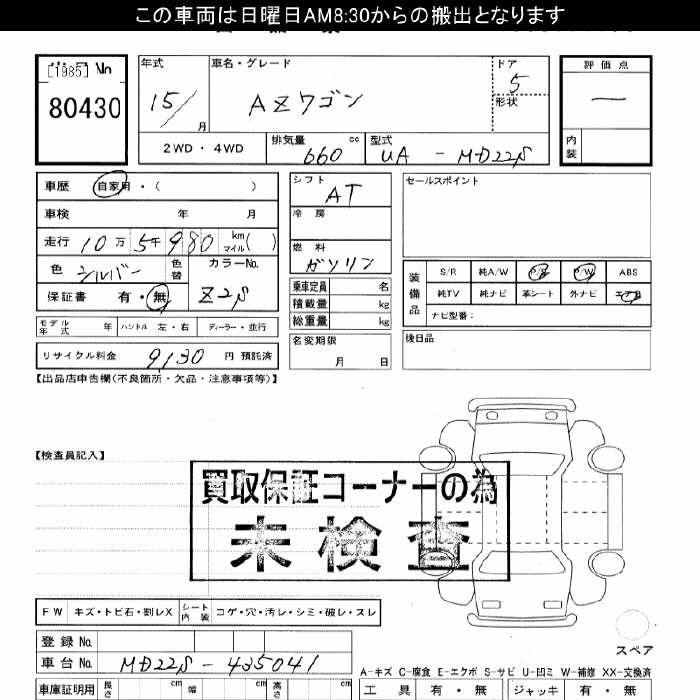 この車両は日曜日AM8:30からの搬出となります
[1985] No 年式 車名・グレード ドア 評価点
80430 15/ 月 AZワゴン 5 形状 —
2WD・4WD 排気量 660 cc 型式 UA - MD22S 内装
車歴 自家用・( ) シフト AT セールスポイント
車検 年 月 冷房
走行 10万 5千 980 km マイル( ) 燃料 ガソリン
色 シルバー 色替 カラーNo. 乗車定員 名 装備品 S/R 純A/W P/S P/W ABS
保証書 有・無 Z2S 積載量 kg 純TV 純ナビ 革シート 外ナビ エアB
総重量 kg ナビ型番:
モデル年式 年 ハンドル 左・右 ディーラー・並行 名変期限 月 日 後日品
リサイクル料金 9130 円 預託済
【出品店申告欄(不良箇所・欠品・注意事項等)】
【検査員記入】
買取保証コーナーの為
未検査
FW キズ・トビ石・割レX シート内装 コゲ・穴・汚レ・シミ・破レ・スレ
スペア
登録No.
車台No. MD22S-435041
A-キズ C-腐食 E-エクボ S-サビ U-凹ミ W-補修 XX-交換済
車庫証明用 長さ cm 幅 cm 高さ cm 工具 有・無 ジャッキ 有・無